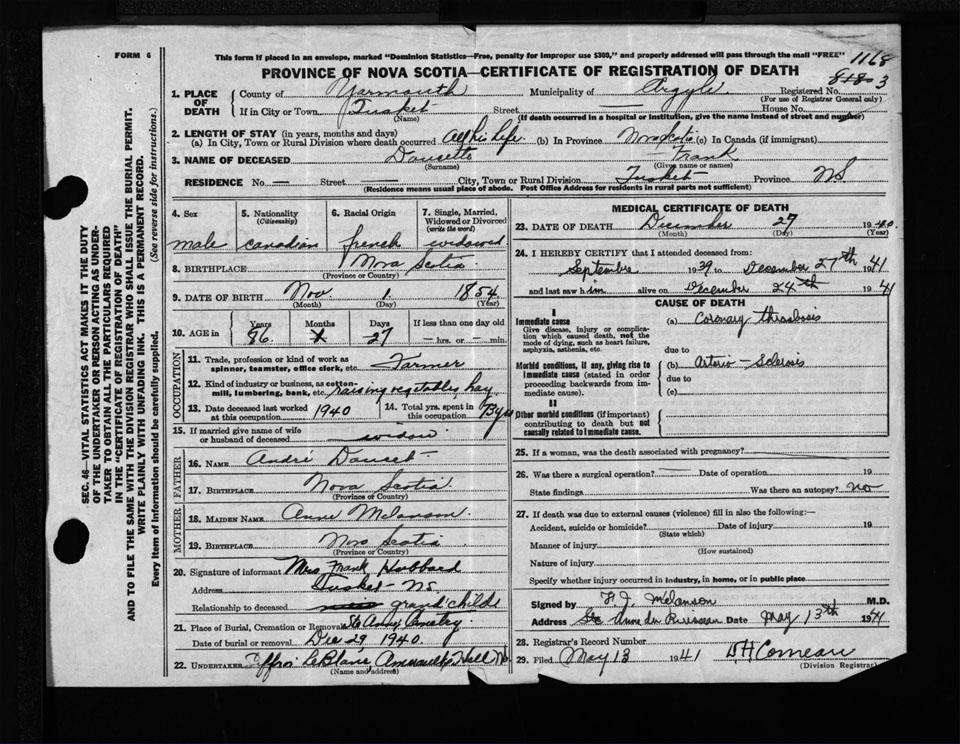 FORM 6
This form if placed in an envelope, marked "Dominion Statistics—Free, penalty for improper use $300," and properly addressed will pass through the mail "FREE"
1168
PROVINCE OF NOVA SCOTIA—CERTIFICATE OF REGISTRATION OF DEATH
8180 3
1. PLACE OF DEATH County of Yarmouth Municipality of Argyle Registered No.
(For use of Registrar General only)
If in City or Town Tusket Street — House No.
(Name) (If death occurred in a hospital or institution, give the name instead of street and number)
2. LENGTH OF STAY (in years, months and days)
(a) In City, Town or Rural Division where death occurred All his life (b) In Province Nova Scotia (c) In Canada (if immigrant)
3. NAME OF DECEASED Doucette Frank
(Surname) (Given name or names)
RESIDENCE No. — Street City, Town or Rural Division Tusket Province NS
(Residence means usual place of abode. Post Office Address for residents in rural parts not sufficient)
SEC. 46—VITAL STATISTICS ACT MAKES IT THE DUTY
OF THE UNDERTAKER OR PERSON ACTING AS UNDER-
TAKER TO OBTAIN ALL THE PARTICULARS REQUIRED
IN THE "CERTIFICATE OF REGISTRATION OF DEATH"
AND TO FILE THE SAME WITH THE DIVISION REGISTRAR WHO SHALL ISSUE THE BURIAL PERMIT.
WRITE PLAINLY WITH UNFADING INK. THIS IS A PERMANENT RECORD.
Every item of Information should be carefully supplied. (See reverse side for instructions.)
4. Sex 5. Nationality (Citizenship) 6. Racial Origin 7. Single, Married, Widowed or Divorced (write the word)
male canadian french widowed
8. BIRTHPLACE Nova Scotia
(Province or Country)
9. DATE OF BIRTH Nov. 1 1854
(Month) (Day) (Year)
10. AGE in Years Months Days If less than one day old
86 1 27 — hrs. or — min.
OCCUPATION
11. Trade, profession or kind of work as spinner, teamster, office clerk, etc. Farmer
12. Kind of industry or business, as cotton-mill, lumbering, bank, etc. raising vegetables, hay
13. Date deceased last worked at this occupation 1940 14. Total yrs. spent in this occupation
15. If married give name of wife or husband of deceased widow
FATHER
16. NAME André Doucet
17. BIRTHPLACE Nova Scotia
(Province or Country)
MOTHER
18. MAIDEN NAME Anne Melanson
19. BIRTHPLACE Nova Scotia
(Province or Country)
20. Signature of informant Mrs Frank Hubbard
Address Tusket - NS
Relationship to deceased grand childe
21. Place of Burial, Cremation or Removal Ste Anne Cemetry
Date of burial or removal Dec 29, 1940.
22. UNDERTAKER LeBlanc, Amiraults Hill NS
(Name and address)
MEDICAL CERTIFICATE OF DEATH
23. DATE OF DEATH December 27 1940
(Month) (Day) (Year)
24. I HEREBY CERTIFY that I attended deceased from:
Septembre 1939 to December 27th 1941
and last saw him alive on December 24th 1941
CAUSE OF DEATH
I
Immediate cause
Give disease, injury or complication which caused death, not the mode of dying, such as heart failure, asphyxia, asthenia, etc.
(a) Coronary thrombosis
due to
Morbid conditions, if any, giving rise to immediate cause (stated in order proceeding backwards from immediate cause).
(b) Arterio-Sclerosis
due to
(c)
II
Other morbid conditions (if important) contributing to death but not causally related to immediate cause.
25. If a woman, was the death associated with pregnancy?
26. Was there a surgical operation? Date of operation 19
State findings Was there an autopsy? no
27. If death was due to external causes (violence) fill in also the following:—
Accident, suicide or homicide? Date of injury 19
(State which)
Manner of injury
(How sustained)
Nature of injury
Specify whether injury occurred in industry, in home, or in public place
Signed by F. J. Melanson M.D.
Address Ste Anne du Ruisseau Date May 13th 1941
28. Registrar's Record Number
29. Filed May 13 1941 Comeau
(Division Registrar)